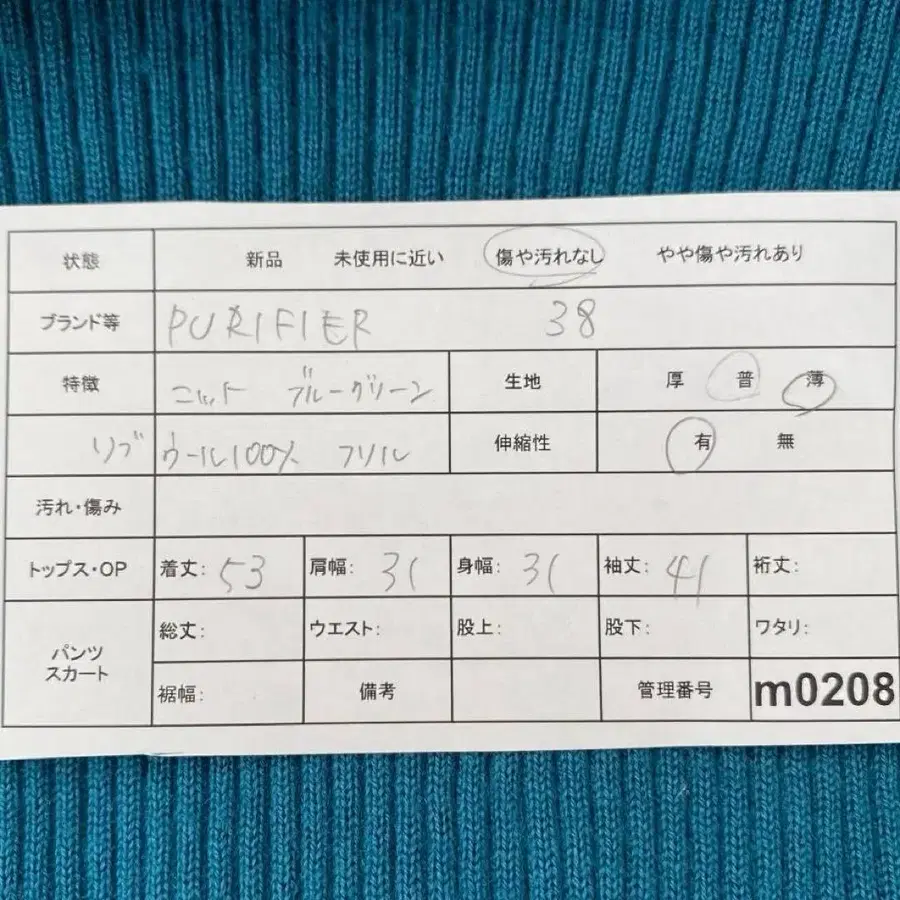 状態 新品 未使用に近い 傷や汚れなし やや傷や汚れあり
ブランド等 PURIFIER 38
特徴 ニット ブルーグリーン 生地 厚 普 薄
リブ ウール100% フリル 伸縮性 有 無
汚れ・傷み
トップス・OP 着丈: 53 肩幅: 31 身幅: 31 袖丈: 41 裄丈:
パンツ スカート 総丈: ウエスト: 股上: 股下: ワタリ:
裾幅: 備考 管理番号 m0208